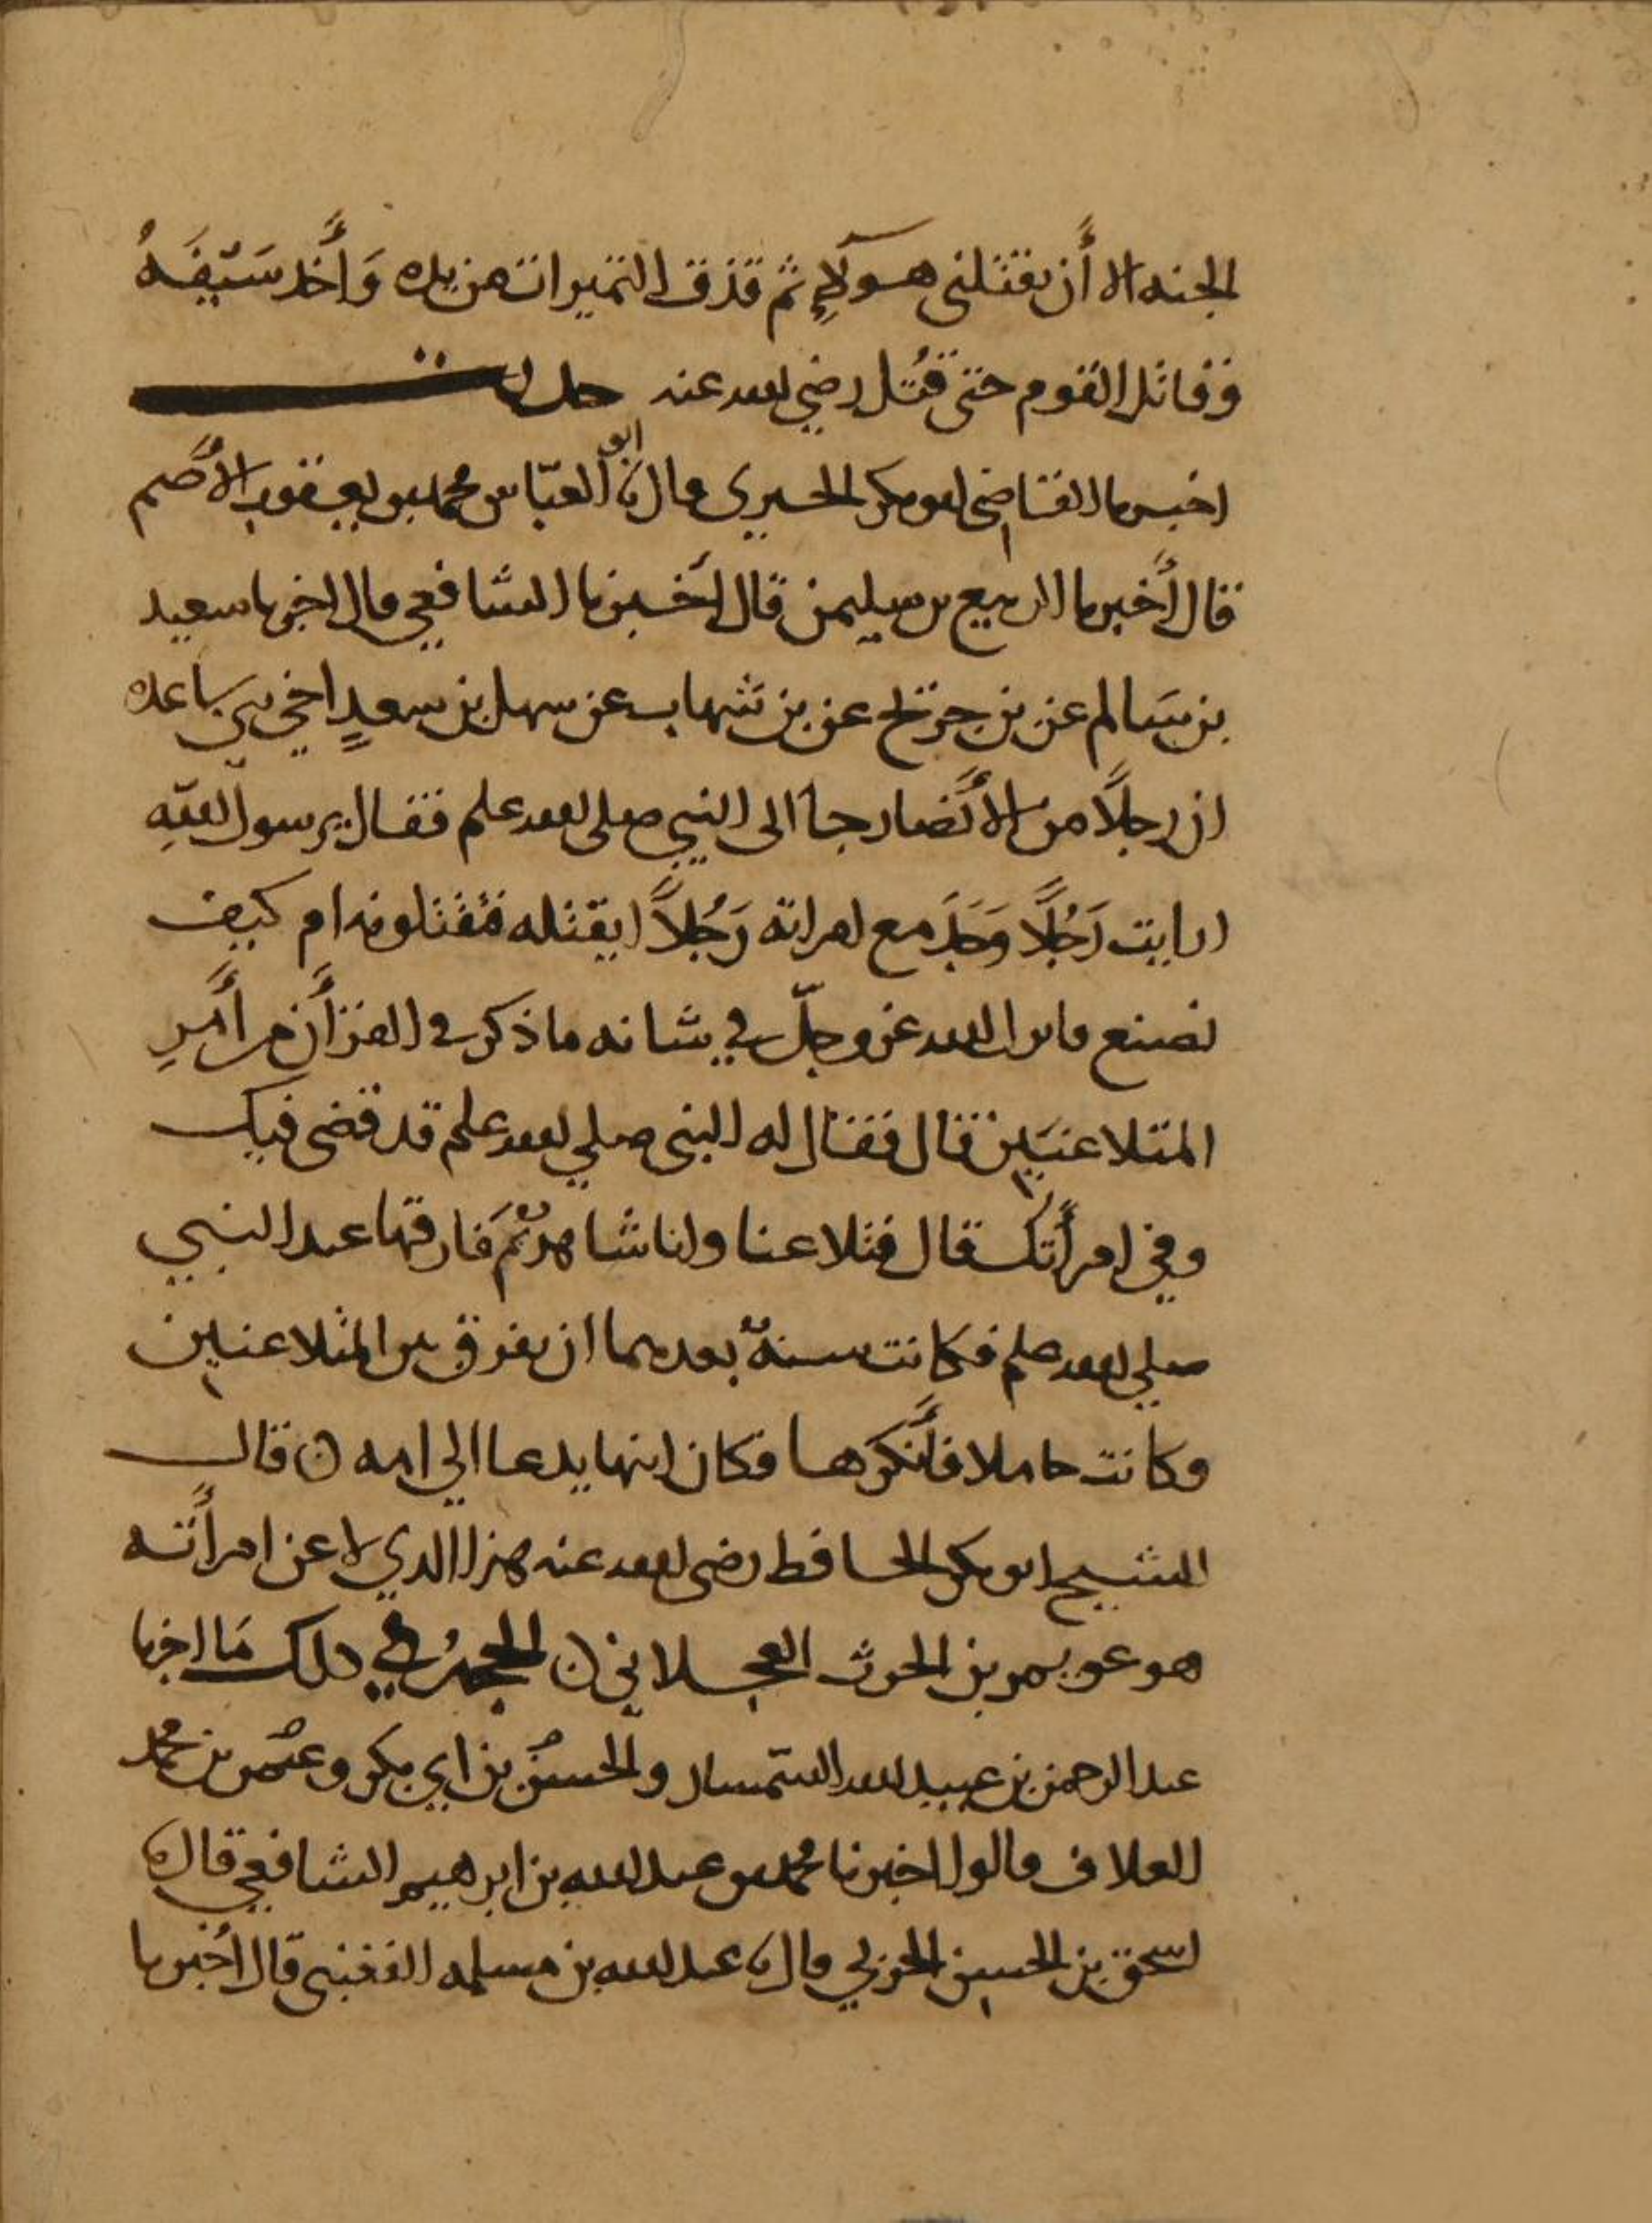 الجنه الا أن يقتلني هـولاءِ ثم قذف التميرات من يده وَأَخذ سَيْفَهُ
وقاتل القوم حتى قُتل رضي الله عنه حديث
اخبرنا القاضي ابو بكر الحيري قال نا ابو العبّاس محمد بن يعقوب الأصم
قال أخبرنا الربيع بن سليمن قال أخبرنا الشافعي قال اخبرنا سعيد
بن سَالم عن بن جريج عن بن شهاب عن سهل بن سعدٍ اخي بني ساعده
ان رجلًا من الأنصار جا الى النبي صلى الله علم فقال يرسول اللهِ
ارايت رَجُلًا وَجَدَ مع امراته رَجُلاً ايقتله فتقتلونه ام كيف
نصنع فانزل الله عز وجلّ في شانه ما ذكر في القرأن من أَمرِ
المتلاعنَين قال فقال له النبي صلى الله علم قد قضى فيك
وفي امرأتك قال فتلاعنا وانا شاهدٌ ثم فارقها عند النبي
صلى الله علم فكانت سنةٌ بعدهما ان يفرق بين المتلاعنين
وكانت حاملا فأنكرها فكان ابنها يدعا الي امه ن قال
الشيخ ابو بكر الحافظ رضى الله عنه هذا الذي لاعن امرأته
هو عويمر بن الحرث العجلاني ن الحجةُ في ذلك مَا اخبرنا
عبد الرحمن بن عبيد الله السّمسار والحسن بن ابي بكر وعثمن بن محمد
العلاف قالوا اخبرنا محمد بن عبد الله بن ابرهيم الشافعي قال نا
اسحق بن الحسين الحربي قال نا عبد الله بن مسلمه القعنبي قال أخبرنا